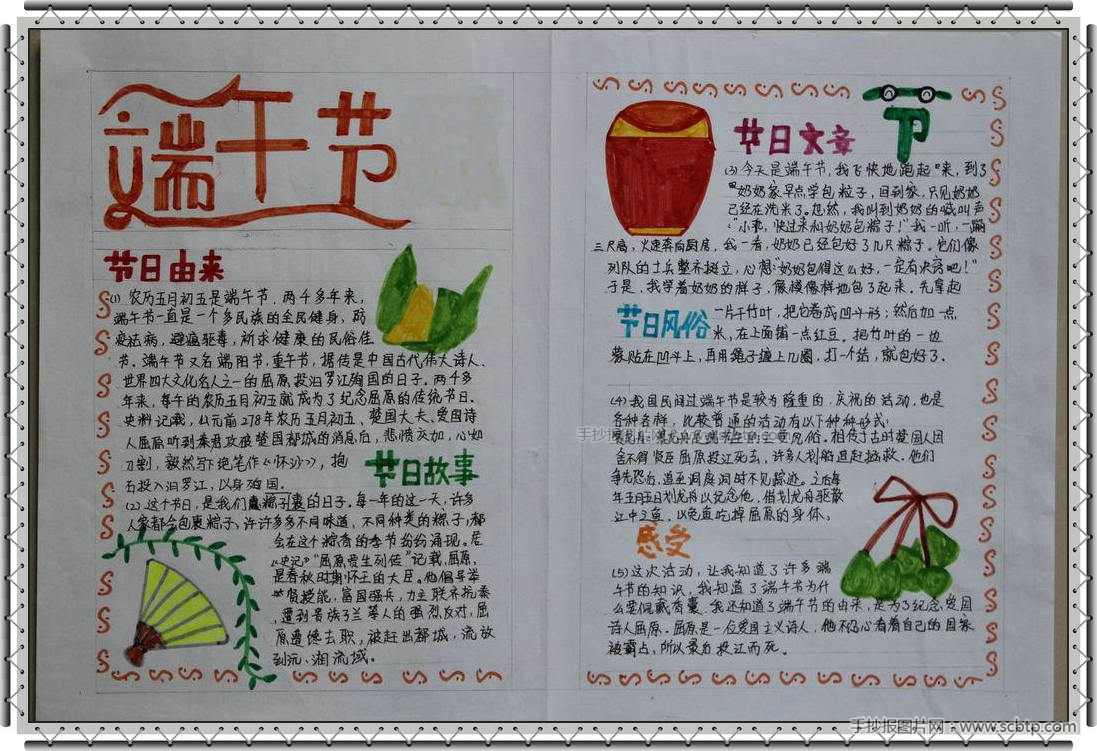 端午节
节日由来
(1) 农历五月初五是端午节,两千多年来,
端午节一直是一个多民族的全民健身,防
疫祛病,避瘟驱毒,祈求健康的民俗佳
节。端午节又名端阳节,重午节,据传是中国古代伟大诗人、
世界四大文化名人之一的屈原投汨罗江殉国的日子。两千多
年来,每年的农历五月初五就成为了纪念屈原的传统节日。
史料记载,公元前278年农历五月初五、楚国大夫、爱国诗
人屈原听到秦君攻破楚国都城的消息后,悲愤交加,心如
刀割,毅然写下绝笔作《怀沙》,抱
石投入汨罗江,以身殉国。
节日故事
(2) 这个节日,是我们 的日子。每一年的这一天,许多
人家都会包裹粽子,许许多多不同味道,不同种类的粽子,都
会在这个粽香的季节纷纷涌现。
史记》"屈原 生列传"记载,屈原,
是春秋时期怀王的大臣。他倡导举
贤授能,富国强兵,力主联齐抗秦,
遭到贵族子兰等人的强烈反对,屈
原遭馋去职,被赶出都城,流放
到沅、湘流域。
节
节日文章
(3) 今天是端午节,我飞快地跑起 来,到了
奶奶家早点学包粒子,回到家,只见奶奶
已经在洗米了。忽然,我叫到奶奶的喊叫声
:"小 ,快过来和奶奶包粽子!"我一听,一蹦
三尺高,火速奔向厨房,我一看,奶奶已经包好了几只粽子。它们像
列队的士兵整齐挺立,心想:"奶奶包得这么好,一定有决窍吧!"
于是,我学着奶奶的样子,展模像样地包了起来。先拿起
节日风俗
一片干竹叶,把它卷成凹斗形;然后加一点
米,在上面铺一点红豆。把竹叶的一边
贴在凹斗上,再用绳子缠上几圈,打一个结,就包好了。
(4) 我国民间过端午节是较为隆重的,庆祝的活动,也是
各种各样,比较普通的活动有以下种种形式:
相传古时楚国人因
舍不得贤臣屈原投江死去,许多人划船追赶拯救。他们
争先恐后,追至洞庭湖时不见踪迹。之后每
年五月五日划龙舟以纪念他,借划龙舟驱散
江中之鱼,以免鱼吃掉屈原的身体。
感受
(5) 这次活动,让我知道了许多端
午节的知识,我知道了端午节为什
么要佩戴香囊,我还知道了端午节的由来,是为了纪念爱国
诗人屈原。屈原是一位爱国主义诗人,他不忍心看着自己的国家
被霸占,所以最后投江而死。
手抄报图片网:www.scbtp.com